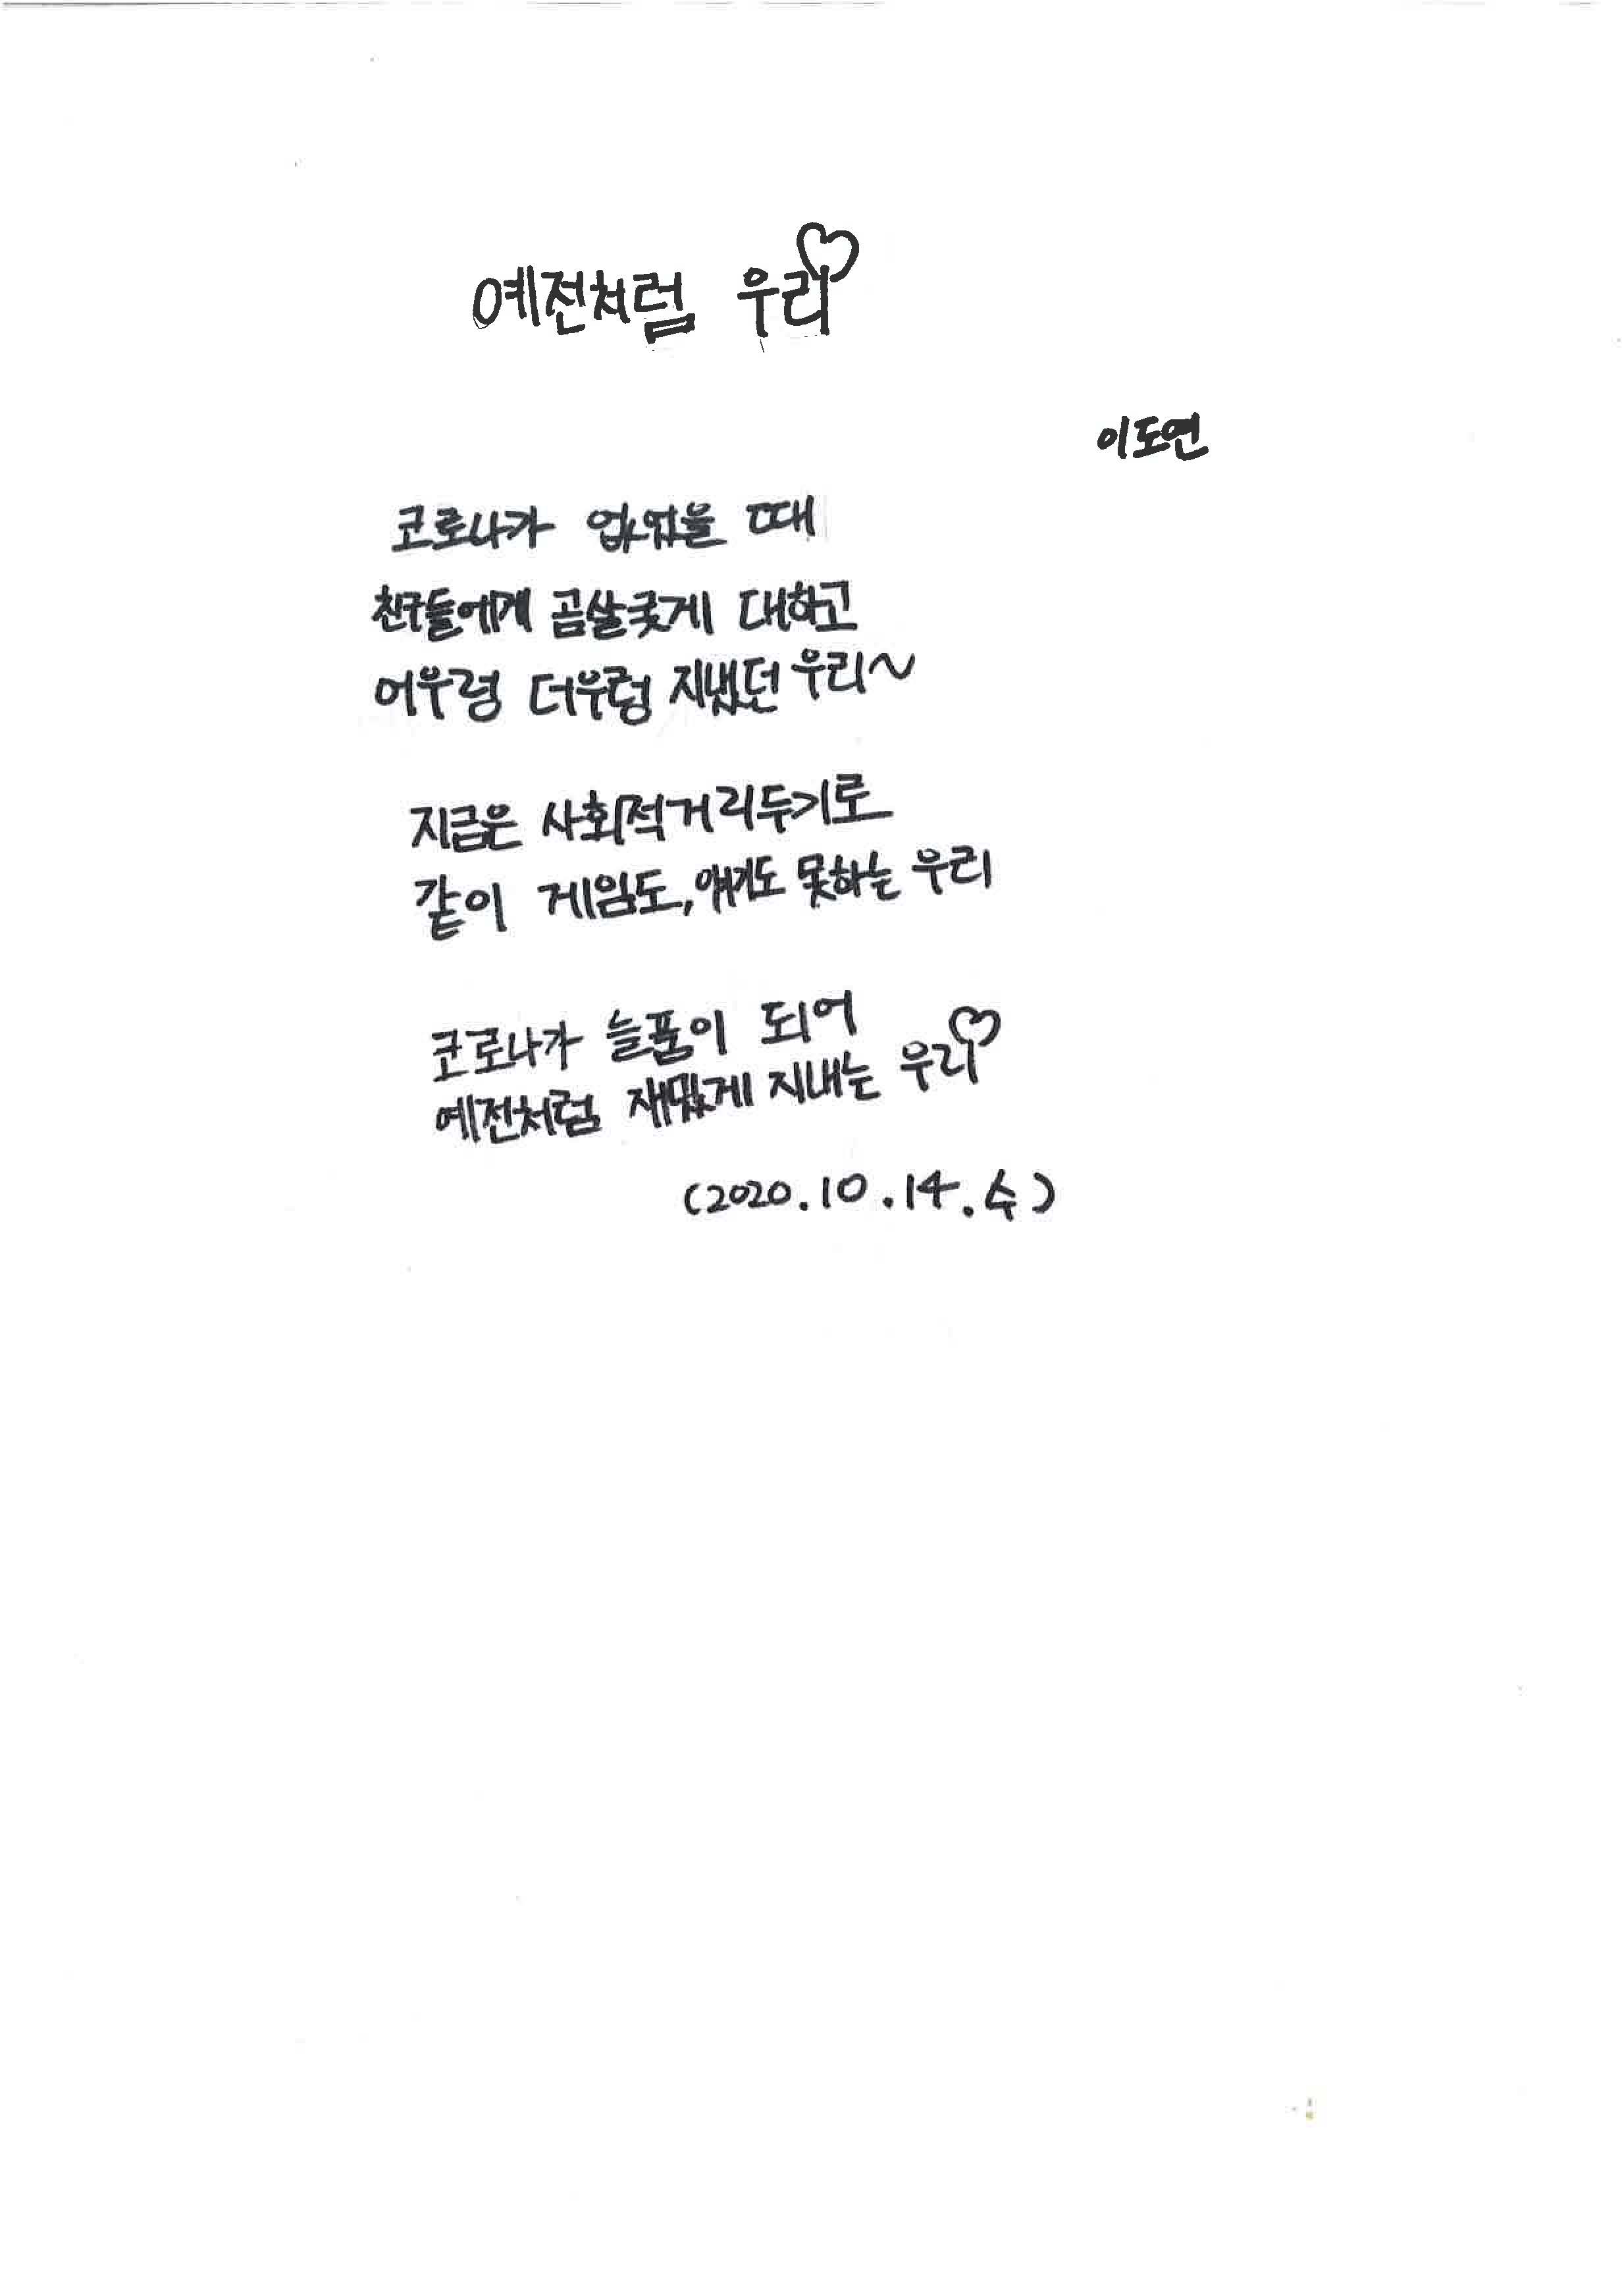 예전처럼 우리♡
이도연
코로나가 없었을 때
친구들에게 곰살궂게 대하고
어우렁 더우렁 지냈던 우리~
지금은 사회적거리두기로
같이 게임도, 얘기도 못하는 우리
코로나가 늘품이 되어
예전처럼 재밌게 지내는 우리♡
(2020.10.14.수)